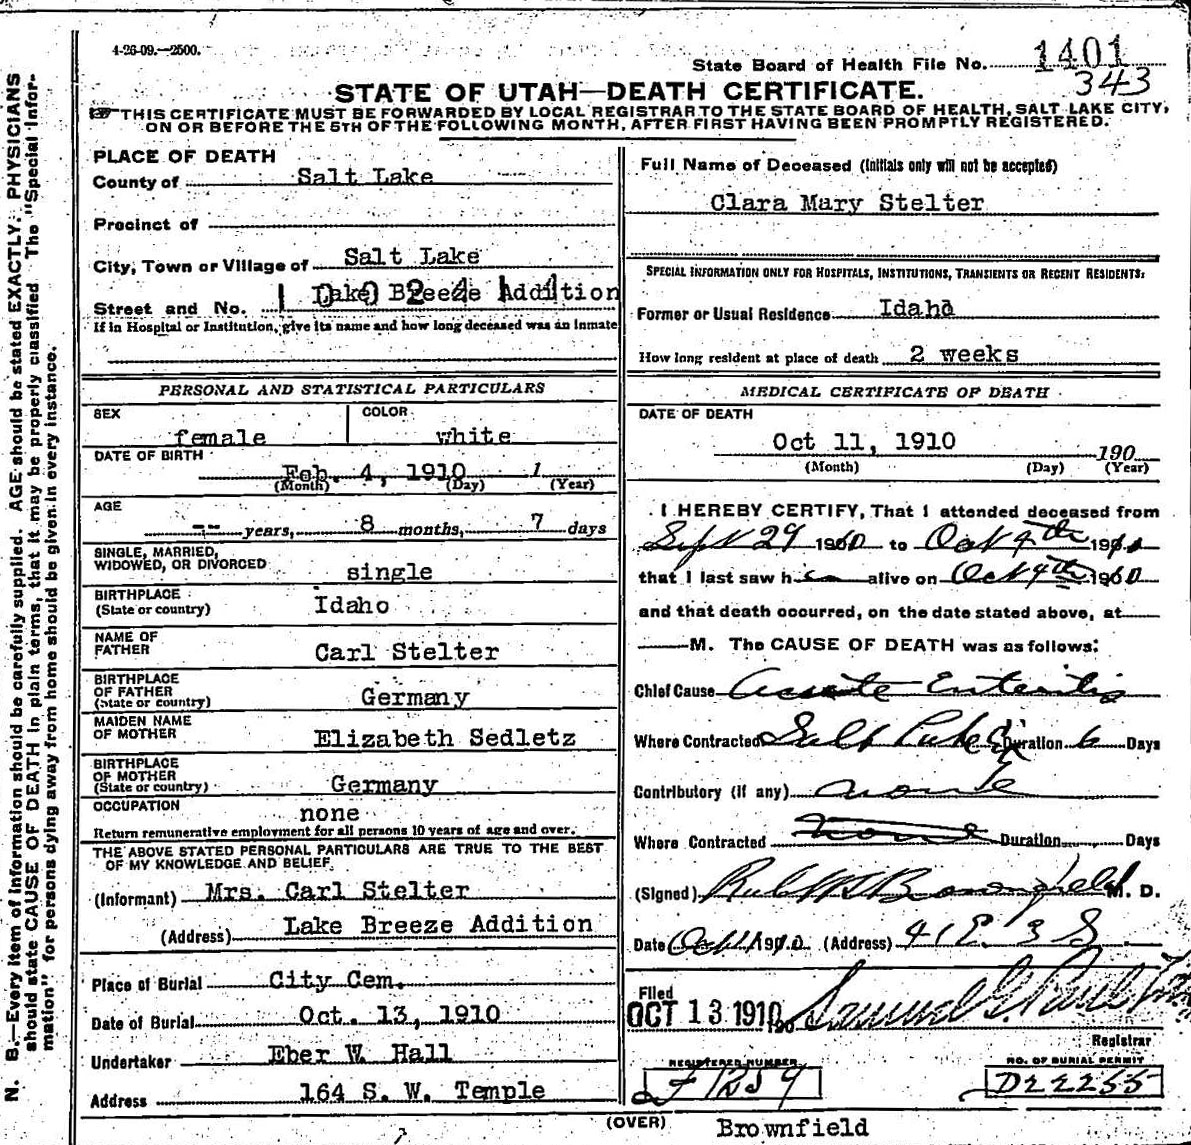 4-26-09.—2500.
State Board of Health File No. 1401
343
STATE OF UTAH—DEATH CERTIFICATE.
THIS CERTIFICATE MUST BE FORWARDED BY LOCAL REGISTRAR TO THE STATE BOARD OF HEALTH, SALT LAKE CITY,
ON OR BEFORE THE 5TH OF THE FOLLOWING MONTH, AFTER FIRST HAVING BEEN PROMPTLY REGISTERED.
PLACE OF DEATH
County of Salt Lake
Precinct of
City, Town or Village of Salt Lake
Street and No. Lake Breeze Addition
If in Hospital or Institution, give its name and how long deceased was an inmate
PERSONAL AND STATISTICAL PARTICULARS
SEX
female
COLOR
white
DATE OF BIRTH
Feb. 4, 1910 1
(Month) (Day) (Year)
AGE
-- years, 8 months, 7 days
SINGLE, MARRIED,
WIDOWED, OR DIVORCED single
BIRTHPLACE
(State or country) Idaho
NAME OF
FATHER Carl Stelter
BIRTHPLACE
OF FATHER
(State or country) Germany
MAIDEN NAME
OF MOTHER Elizabeth Sedletz
BIRTHPLACE
OF MOTHER
(State or country) Germany
OCCUPATION
none
Return remunerative employment for all persons 10 years of age and over.
THE ABOVE STATED PERSONAL PARTICULARS ARE TRUE TO THE BEST
OF MY KNOWLEDGE AND BELIEF.
(Informant) Mrs. Carl Stelter
(Address) Lake Breeze Addition
Place of Burial City Cem.
Date of Burial Oct. 13, 1910
Undertaker Eber W. Hall
Address 164 S. W. Temple
Full Name of Deceased (Initials only will not be accepted)
Clara Mary Stelter
SPECIAL INFORMATION ONLY FOR HOSPITALS, INSTITUTIONS, TRANSIENTS OR RECENT RESIDENTS:
Former or Usual Residence Idaho
How long resident at place of death 2 weeks
MEDICAL CERTIFICATE OF DEATH
DATE OF DEATH
Oct 11, 1910 190
(Month) (Day) (Year)
I HEREBY CERTIFY, That I attended deceased from
Sept 29 1910 to Oct 4th 1910
that I last saw her alive on Oct 4th 1910
and that death occurred, on the date stated above, at
M. The CAUSE OF DEATH was as follows:
Chief Cause Acute Enteritis
Where Contracted Salt Lake City Duration 6 Days
Contributory (if any) none
Where Contracted none Duration Days
(Signed) Brownfield M. D.
Date Oct 11 1910 (Address) 41 E. 3 S.
Filed
OCT 13 1910 190 Samuel G. Paul
Registrar
REGISTERED NUMBER
F1259
NO. OF BURIAL PERMIT
D22255
(OVER)
Brownfield
N. B.—Every item of information should be carefully supplied. AGE should be stated EXACTLY. PHYSICIANS
should state CAUSE OF DEATH in plain terms, that it may be properly classified. The "Special Infor-
mation" for persons dying away from home should be given in every instance.